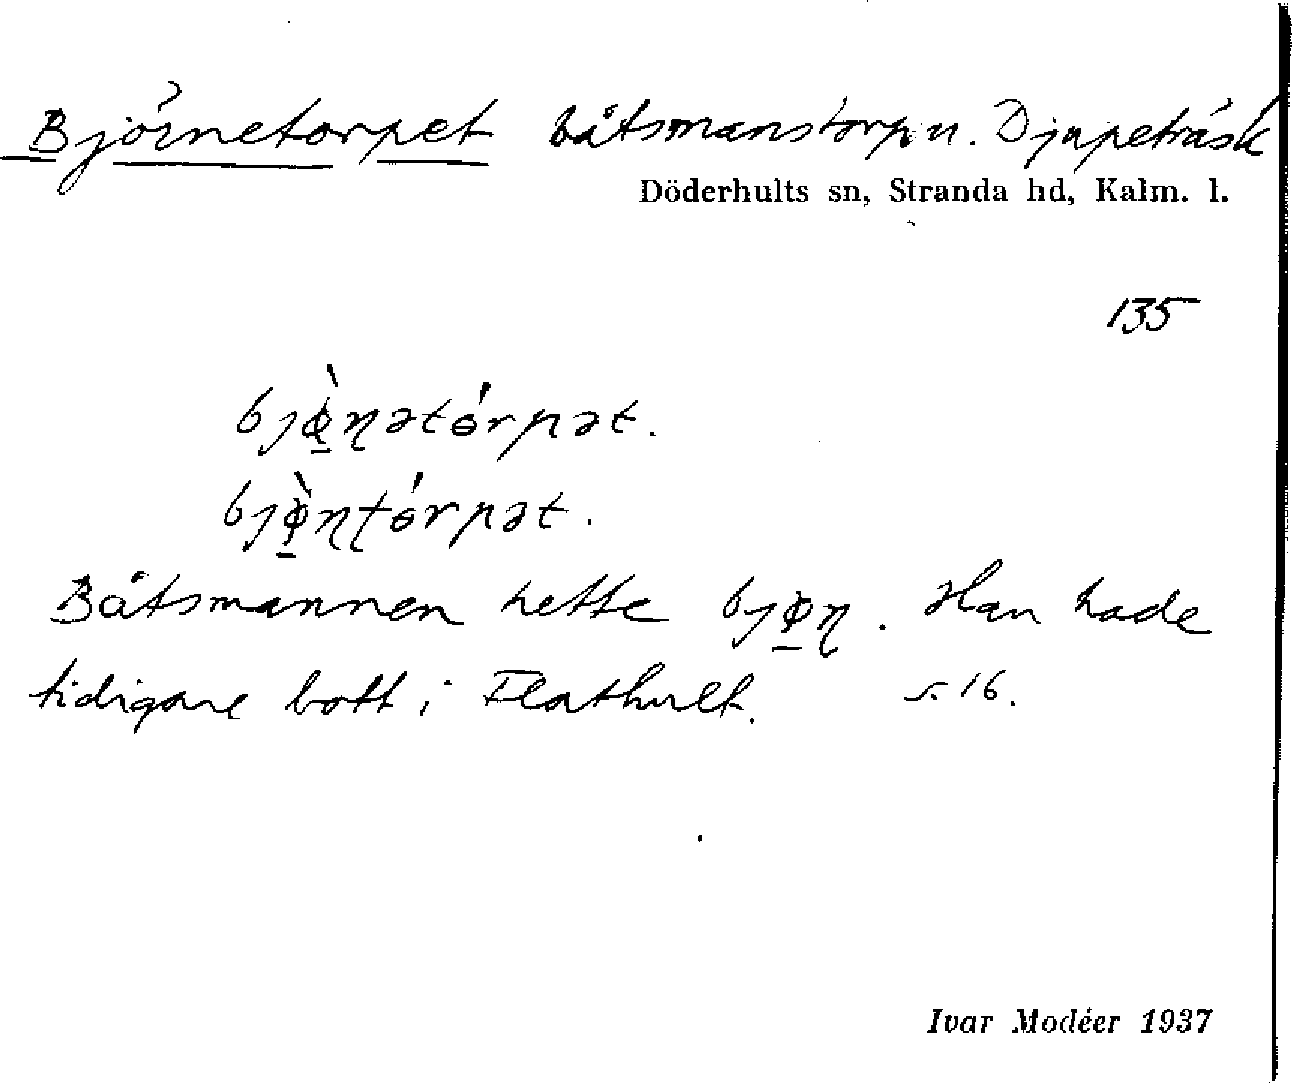 Björnetorpet båtsmanstorp u. Djupeträsk
Döderhults sn, Stranda hd, Kalm. l.
135
bjø̱̀ɳətɵ́rpət.
bjø̱̀ɳʈɵ́rpət.
Båtsmannen hette bjø̱ɳ. Han hade
tidigare bott i Flathult. s. 16.
Ivar Modéer 1937